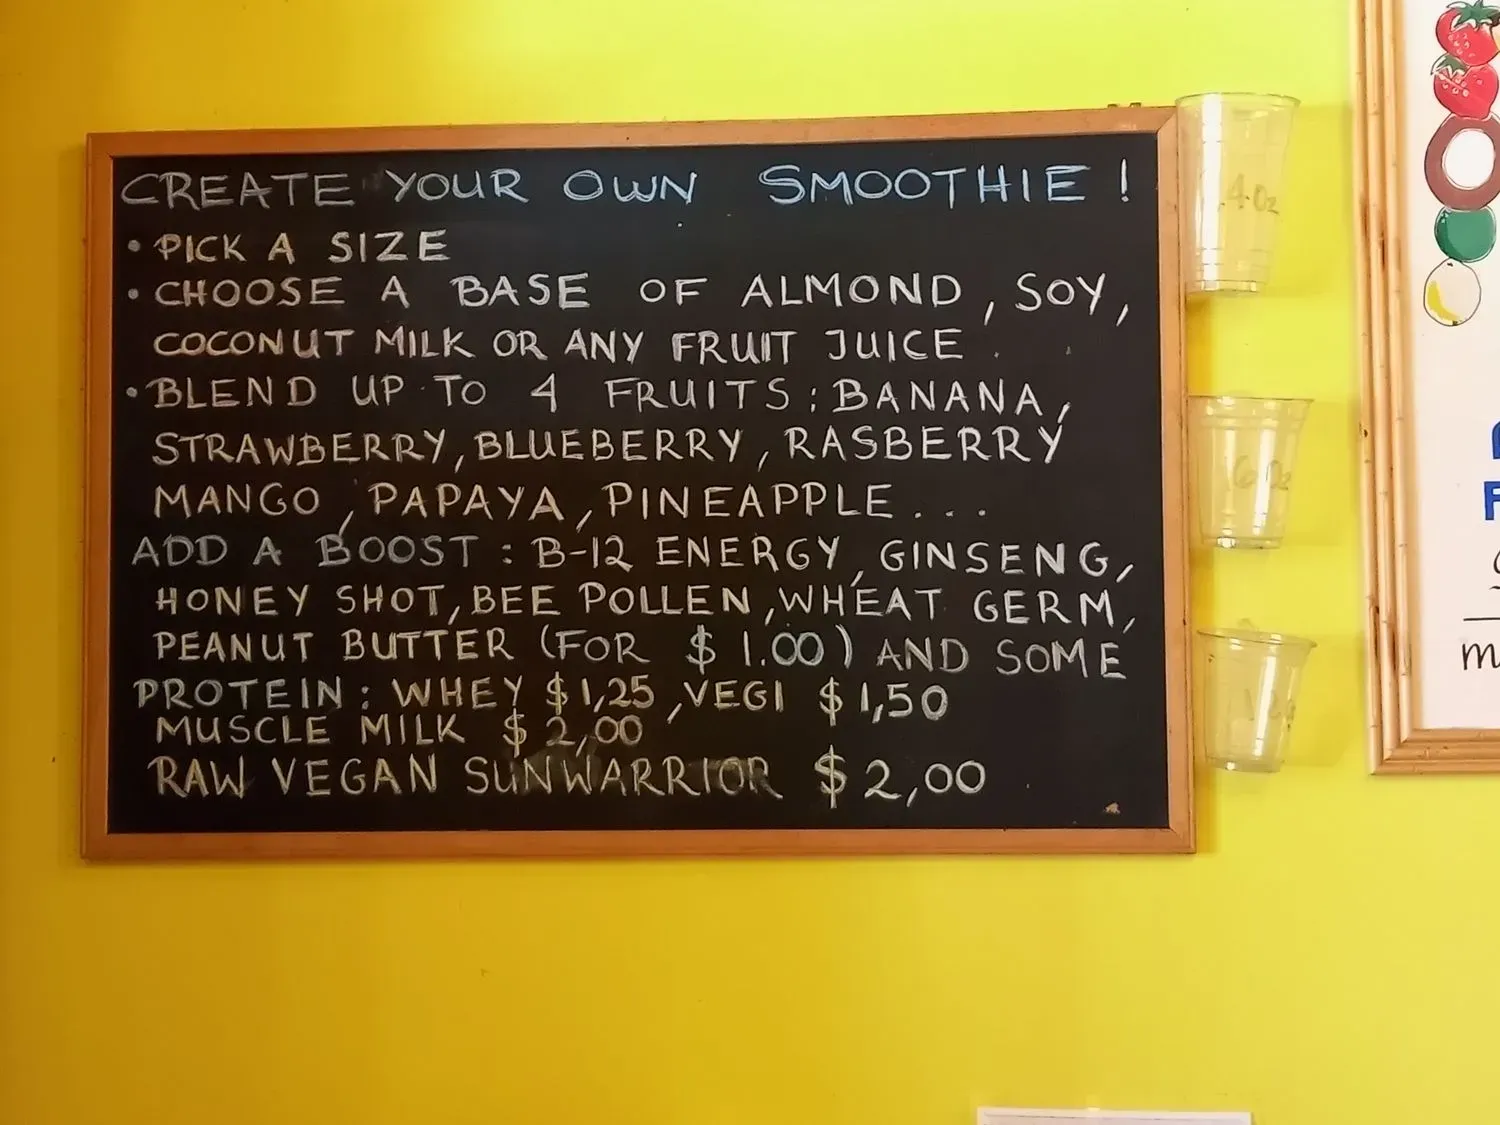 CREATE YOUR OWN SMOOTHIE!
• PICK A SIZE
• CHOOSE A BASE OF ALMOND, SOY,
COCONUT MILK OR ANY FRUIT JUICE.
• BLEND UP TO 4 FRUITS: BANANA,
STRAWBERRY, BLUEBERRY, RASBERRY
MANGO, PAPAYA, PINEAPPLE...
ADD A BOOST: B-12 ENERGY, GINSENG,
HONEY SHOT, BEE POLLEN, WHEAT GERM,
PEANUT BUTTER (FOR $1.00) AND SOME
PROTEIN: WHEY $1,25, VEGI $1,50
MUSCLE MILK $2,00
RAW VEGAN SUNWARRIOR $2,00